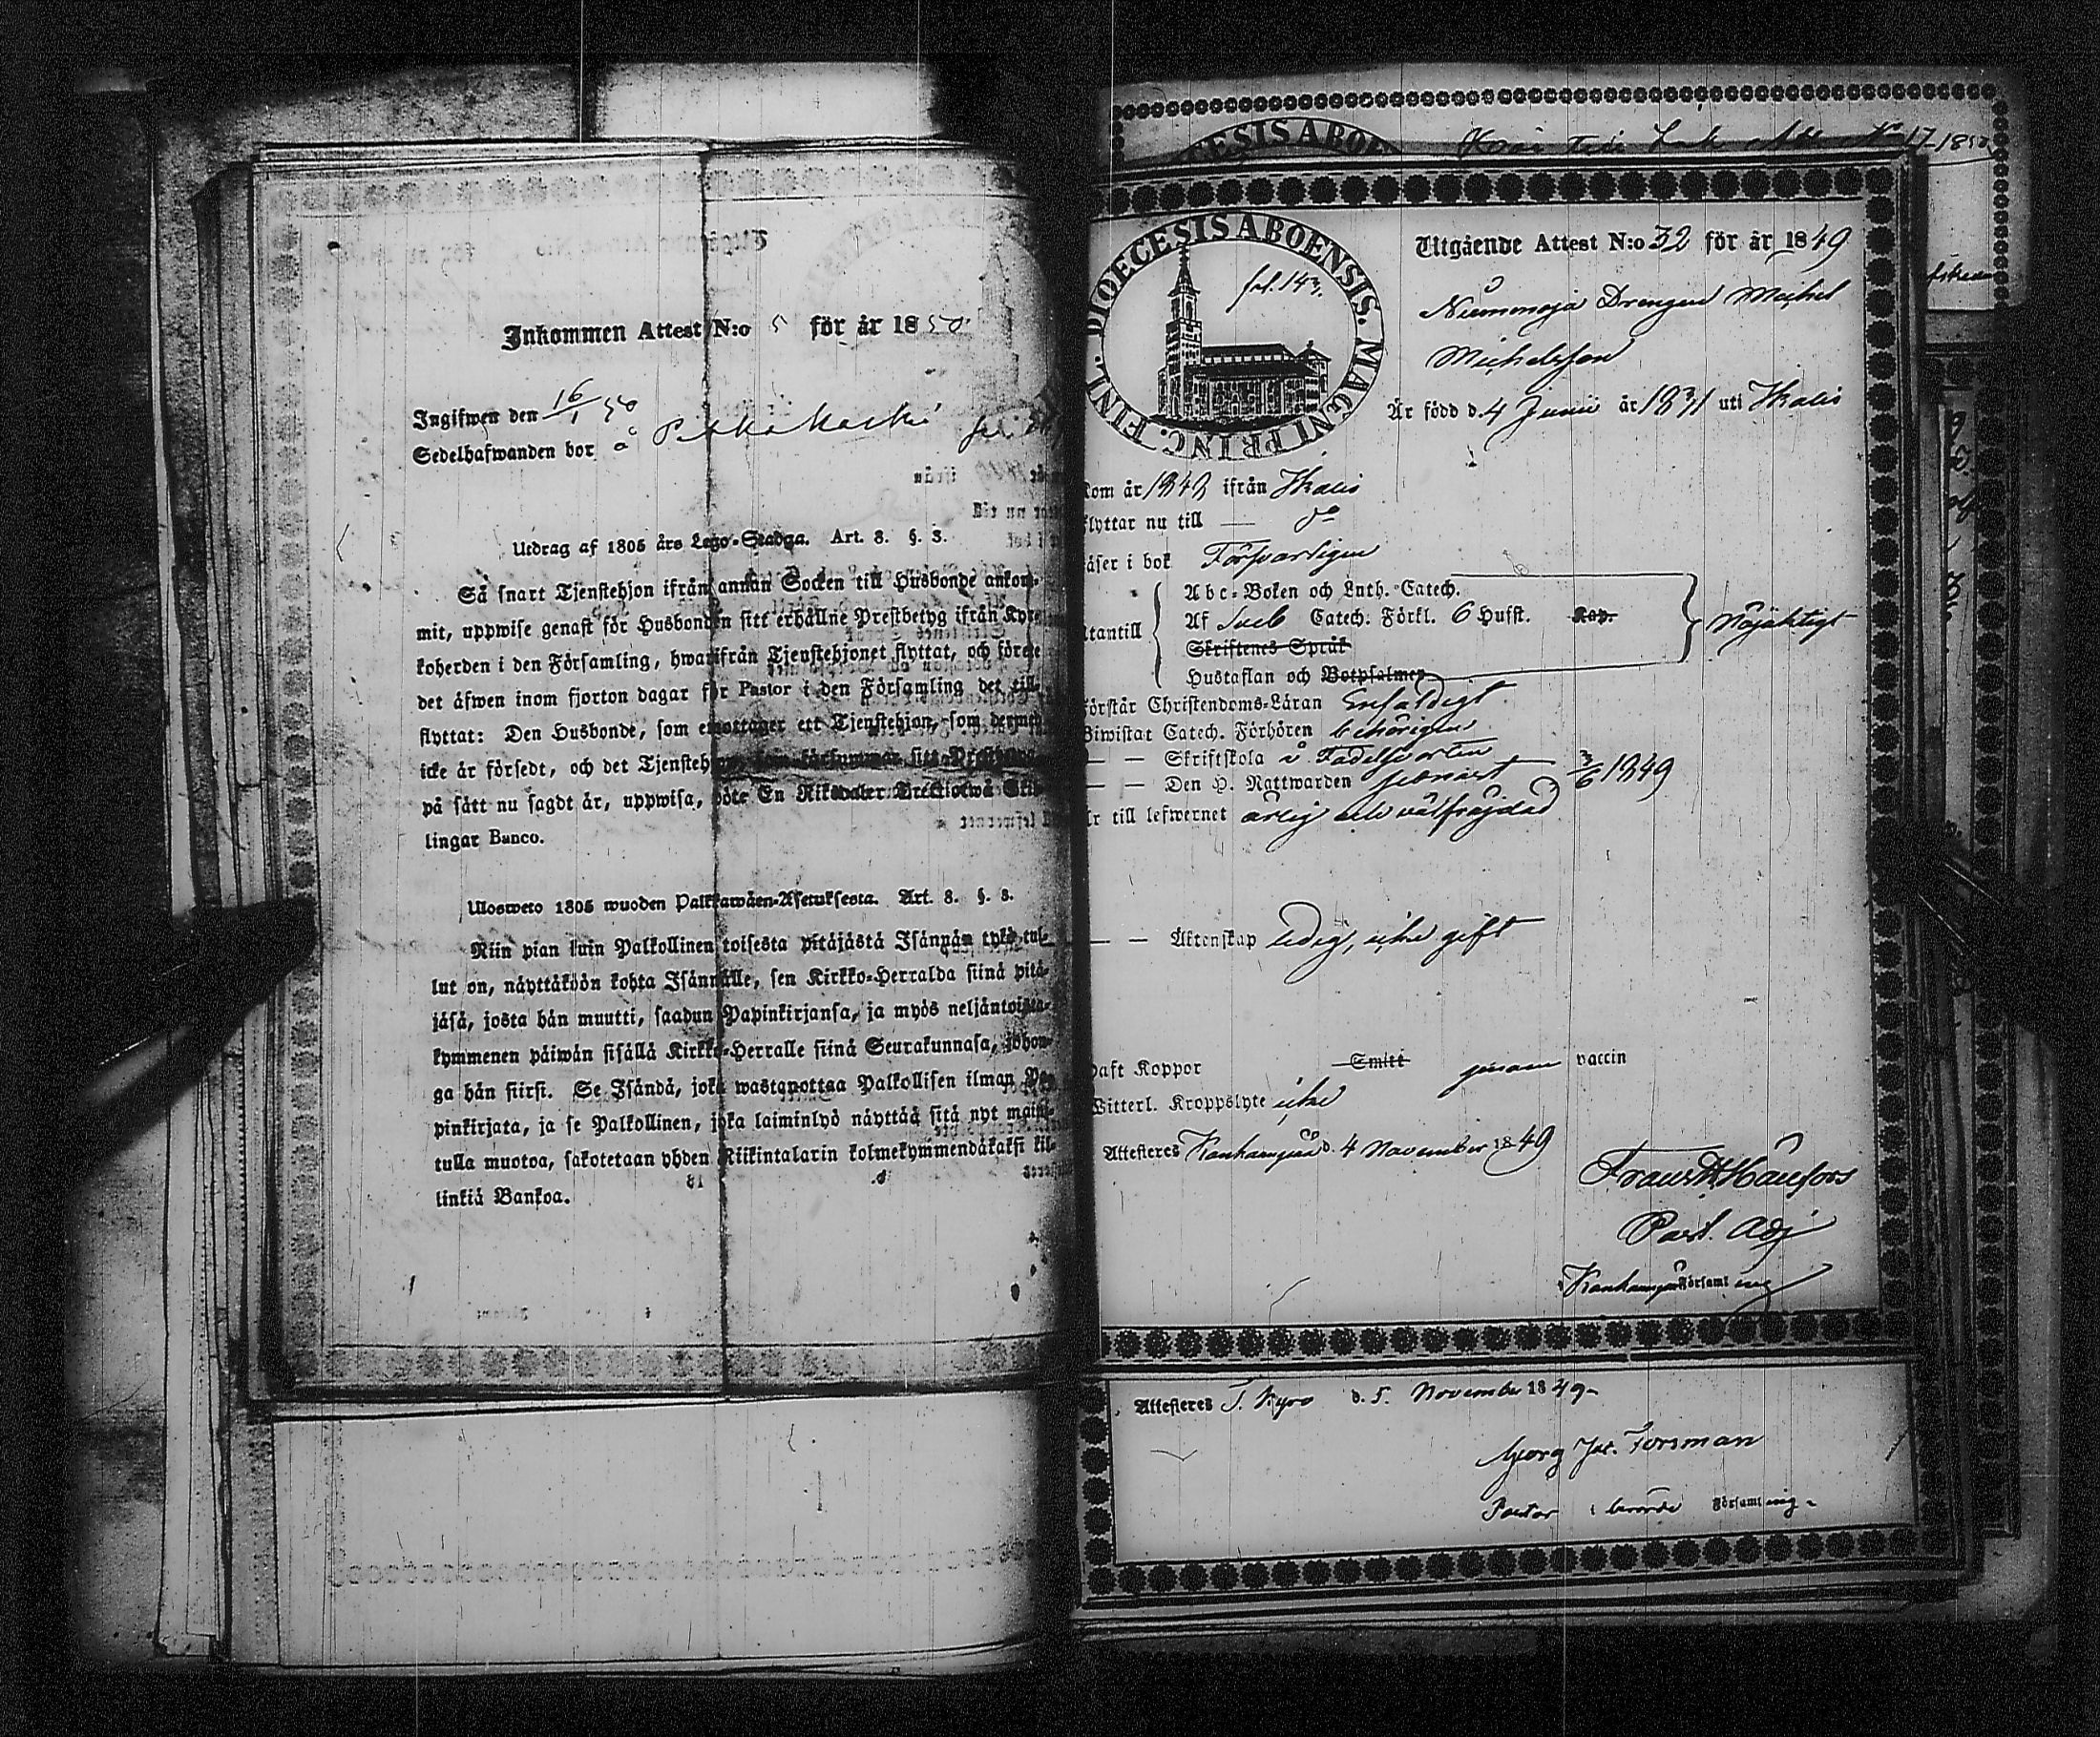 Inkommen Attest N:o 5 för år 1850
Ingifwen den 16/1 50
Sedelhafwanden bor å
Utdrag af 1805 års Lego-Stadga. Art. 8. §. 3.
Så snart Tjenstehjon ifrån annan Socken till Husbonde ankom-
mit, uppwise genast för Husbonden sitt erhållne Prestbetyg ifrån Kyr-
koherden i den Församling, hwarifrån Tjenstehjonet flyttat, och förete
det äfwen inom fjorton dagar för Pastor i den Församling det till-
flyttat: Den Husbonde, som emottager ett Tjenstehjon, som dermed
icke är försedt, och det Tjenstehjon, som försummar sitt
på sätt nu sagdt är, uppwisa, böte En Riksdaler Trettiotwå Skil-
lingar Banco.
Ulosweto 1805 wuoden Palkkawäen-Asetuksesta. Art. 8. §. 3.
Niin pian kuin Palkollinen toisesta pitäjästä Isännän tykö tul-
lut on, näyttäköön kohta Isännälle, sen Kirkko-Herralda siinä pitä-
jäsä, josta hän muutti, saadun Papinkirjansa, ja myös neljäntoista-
kymmenen päiwän sisällä Kirkko-Herralle siinä Seurakunnasa, johon-
ga hän siirsi. Se Isändä, joka wastanottaa Palkollisen ilman Pa-
pinkirjata, ja se Palkollinen, joka laiminlyö näyttää sitä nyt maini-
tulla muotoa, sakotetaan yhden Riikintalarin kolmekymmendäkaksi kil-
linkiä Bankoa.
N:o 17 1850
CESIS ABOE
DIOECESIS ABOENSIS. MAGNI PRINC. FINL.
fol. 143.
Utgående Attest N:o 32 för år 1849
Drengen Michel
Michelsson
Är född d. 4 Junii år 1831 uti Ikalis
kom år 1842 ifrån Ikalis
flyttar nu till — do
läser i bok Försvarligen
Abc-Boken och Luth. Catech.
Af Sveb Catech. Förkl. 6 Hufst. Kap.
utantill
Skriftenes Språk
Hustaflan och Botpsalmen
Nöjaktigt
Förstår Christendoms-Läran Enfaldigt
Biwistat Catech. Förhören behörigen
— — Skriftskola å Fädelseorten
— — Den H. Nattwarden senast 3/6 1849
Är till lefwernet ärlig och välfrejdad
— — Äktenskap ledig, icke gift
haft Koppor Smitt genom vaccin
Witterl. Kroppslyte icke
Attesteres Kankampää d. 4 November 1849
Past. Adj
Kankampää Församling
Attesteres T. Kyro d. 5. November 1849-
Georg Jac. Forsman
Pastor i berörde Församling.